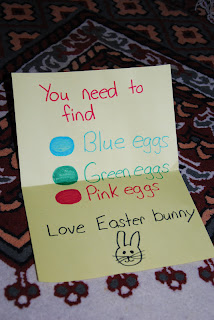 You need to
find
Blue eggs
Green eggs
Pink eggs
Love Easter bunny